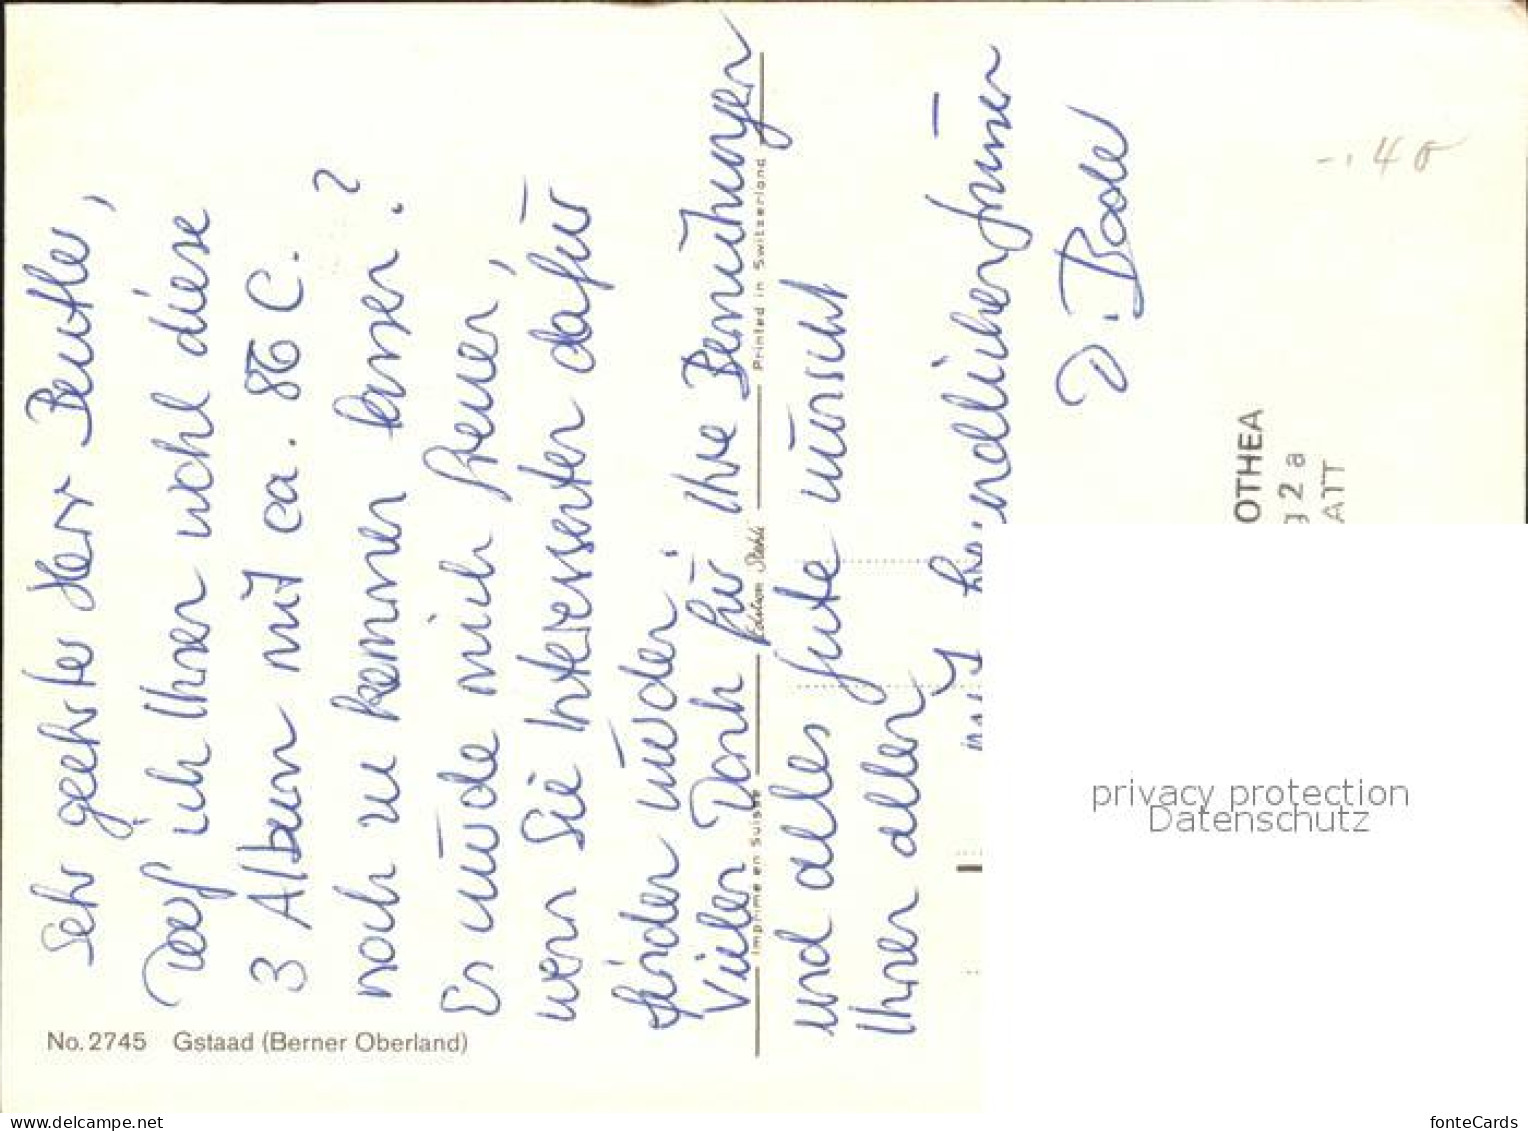 Sehr geehrter Herr Beutler,
Darf ich Ihnen wohl diese
3 Alben mit ca. 86 C.
noch zu kommen lassen?
Es würde mich freuen,
wenn Sie Interessenten dafür
finden würden.
Vielen Dank für Ihre Bemühungen
und alles Gute wünscht
Ihnen allen
D. Bode
No. 2745 Gstaad (Berner Oberland)
Imprimé en Suisse Edition Stehli Printed in Switzerland
-.40
OTHEA
g 2 a
ATT
privacy protection
Datenschutz
www.delcampe.net
fonteCards